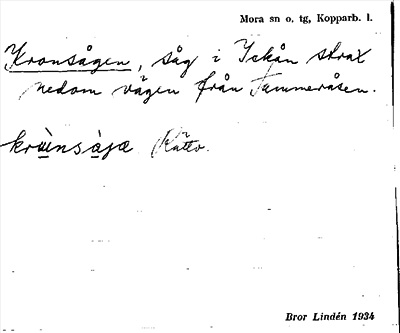 Mora sn o. tg, Kopparb. l.
Kronsågen, såg i Ickån strax
nedom vägen från Tammeråsen.
krùnsàjæ Rättv.
Bror Lindén 1934